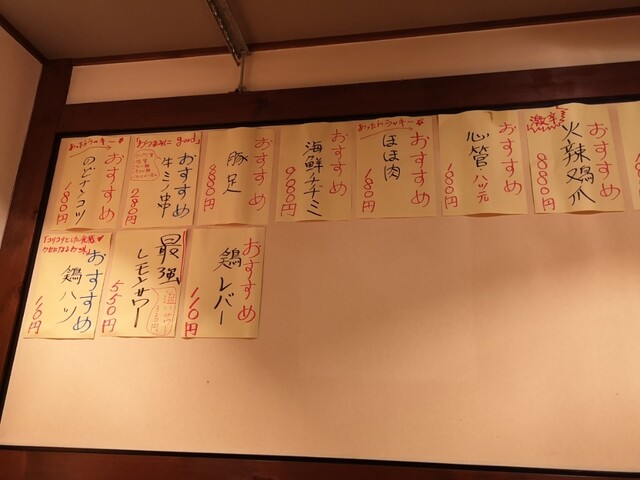 あったらラッキー
おすすめ
のどナンコツ
180円
おつまみに good
おすすめ
牛ミノ串
280円
おすすめ
豚足
880円
おすすめ
海鮮チヂミ
900円
あったらラッキー
おすすめ
ほほ肉
180円
おすすめ
心管・ハツ元
180円
激辛
おすすめ
火辣鶏爪
880円
おすすめ
鶏ハツ
110円
最強
レモンサワー
550円
おすすめ
鶏レバー
110円